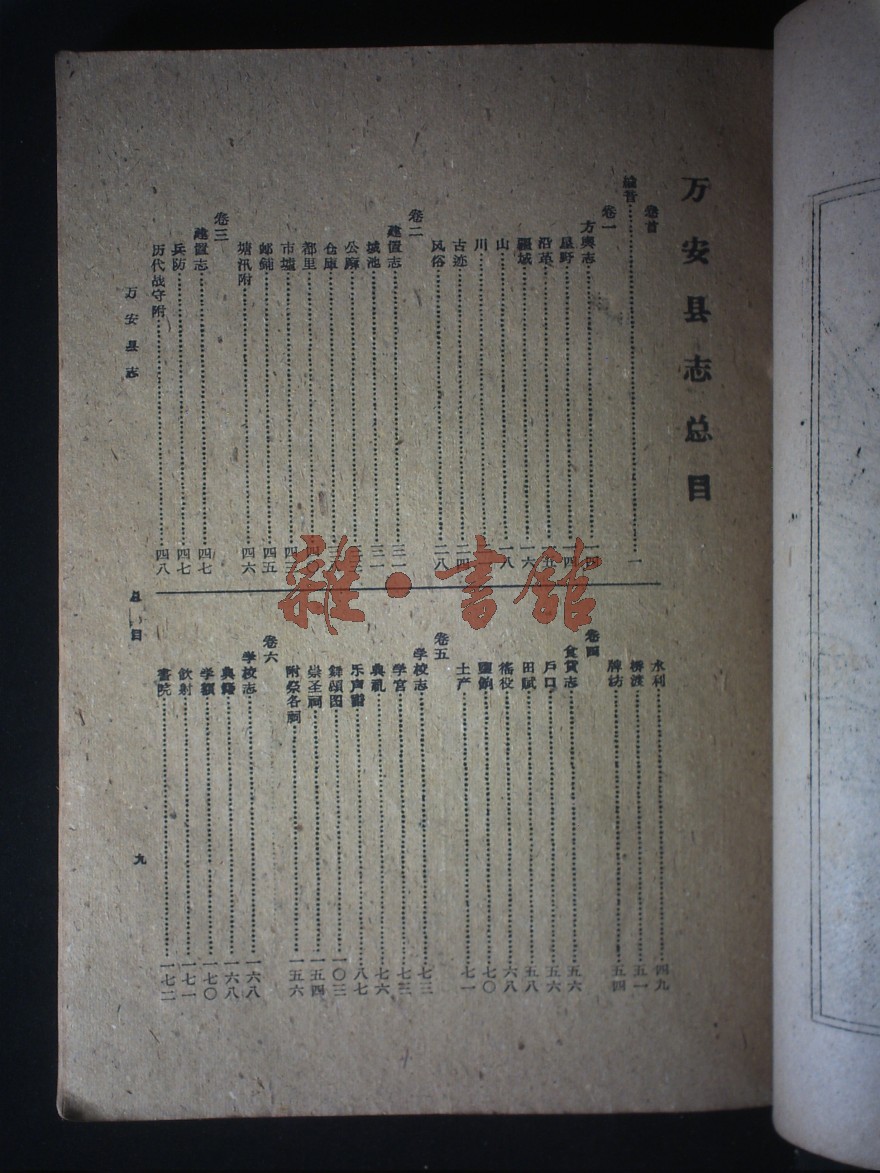 万安县志总目
卷首
卷一
方舆志……一四
星野……一四
沿革……一五
疆域……一六
山……一八
川
古迹……二四
风俗……二八
卷二
建置志……三一
城池……三一
公廨
仓库
都里……四〇
市墟
邮铺……四五
塘汛附……四六
卷三
建置志……四七
兵防……四七
历代战守附……四八
水利……四九
桥渡……五一
牌坊……五四
卷四
食货志……五六
户口……五六
田赋……五八
徭役……六八
盐饷……七〇
土产……七一
卷五
学校志……七三
学宫……七三
典礼……七六
乐声谱……八七
……一〇三
崇圣祠……一五四
附祭各祠……一五六
卷六
学校志……一六八
典籍……一六八
学额……一七〇
饮射……一七一
書院……一七二
万安县志
总目
九
雜·書館